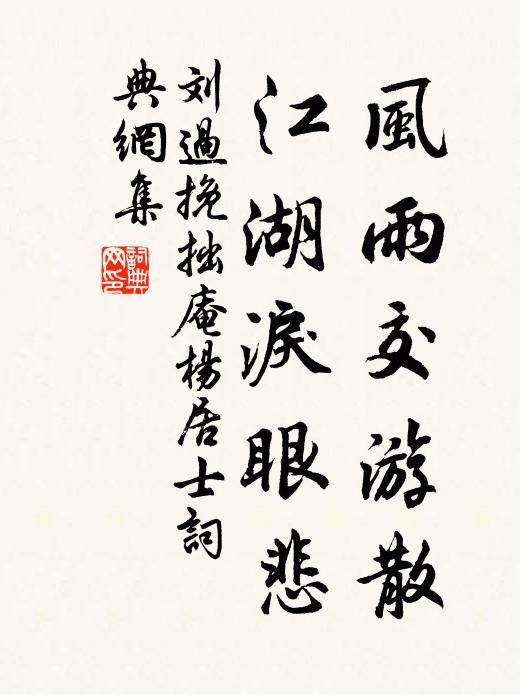 風雨交游散
江湖淚眼悲
刘過挽拙庵楊居士詞
典網集
詞典
网印